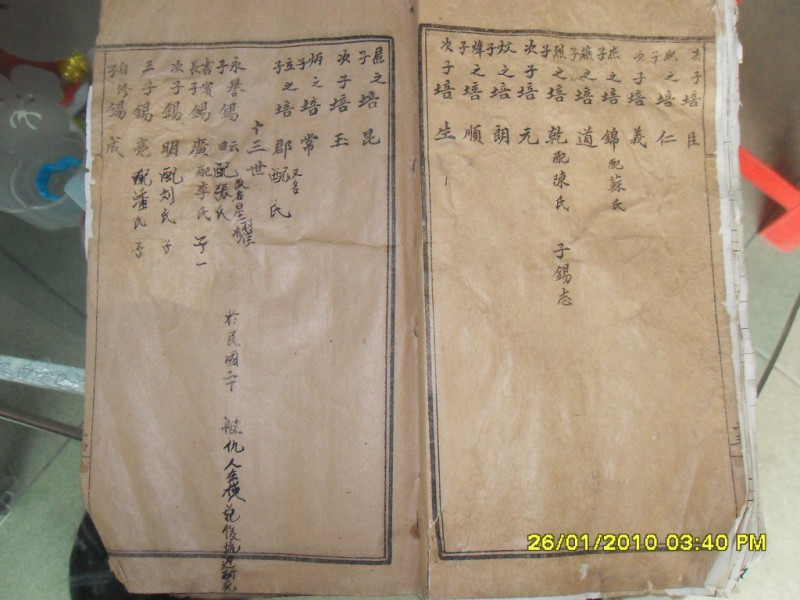 次子培臣
子培仁
次子培義
杰之子培錦配蘇氏
之子培道
烈之子培乾配陳氏 子錫志
次子培元
炆之子培朗
煒之子培順
次子培生
之子培昆
次子培玉
炳之子培常
立之子培郡配 氏
十三世
永馨子錫云配張氏
改名星耀
書賓長子錫廣配李氏 子一
於民國二十
仇人
次子錫明配刘氏 子
三子錫亮配潘氏 子
自修子錫成
26/01/2010 03:40 PM